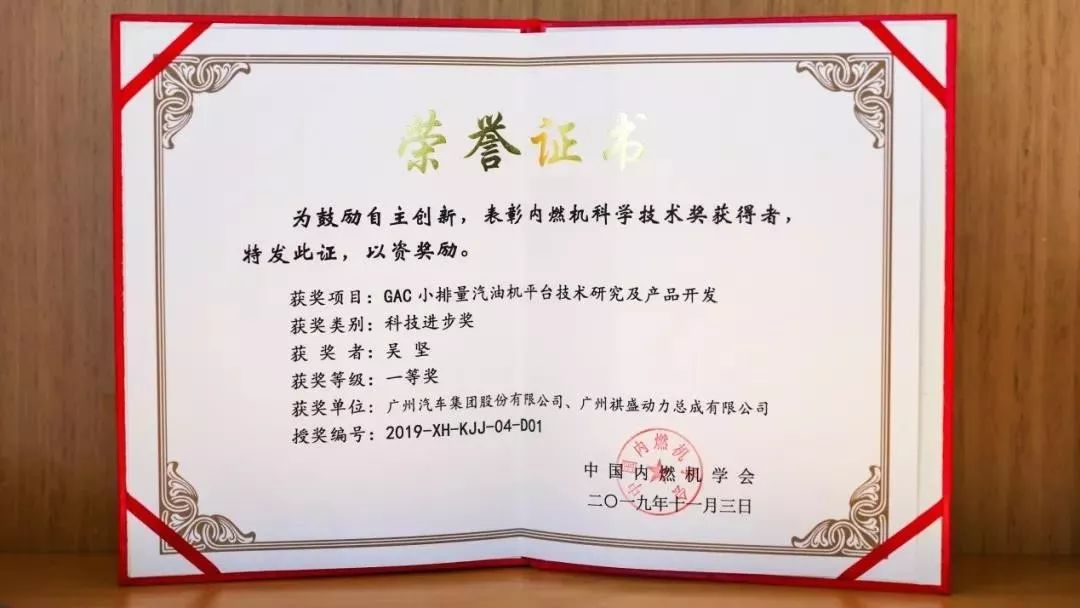 荣誉证书
为鼓励自主创新，表彰内燃机科学技术奖获得者，
特发此证，以资奖励。
获奖项目：GAC 小排量汽油机平台技术研究及产品开发
获奖类别：科技进步奖
获 奖 者：吴 坚
获奖等级：一等奖
获奖单位：广州汽车集团股份有限公司、广州祺盛动力总成有限公司
授奖编号：2019-XH-KJJ-04-D01
中国内燃机学会
中国内燃机学会
二〇一九年十一月三日